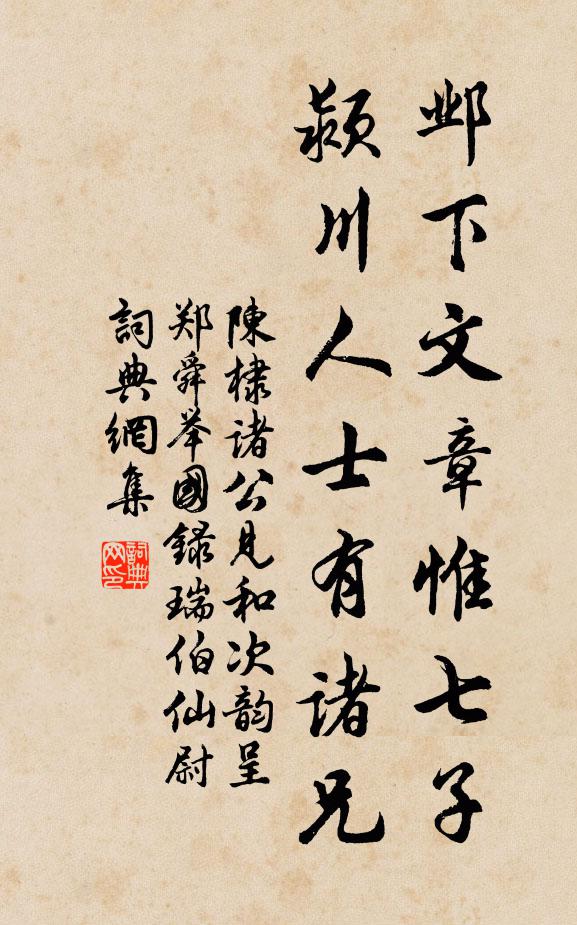 邺下文章惟七子
颍川人士有诸兄
陳棣诸公見和次韵呈
郑舜举國録瑞伯仙尉
詞典網集
詞典网印